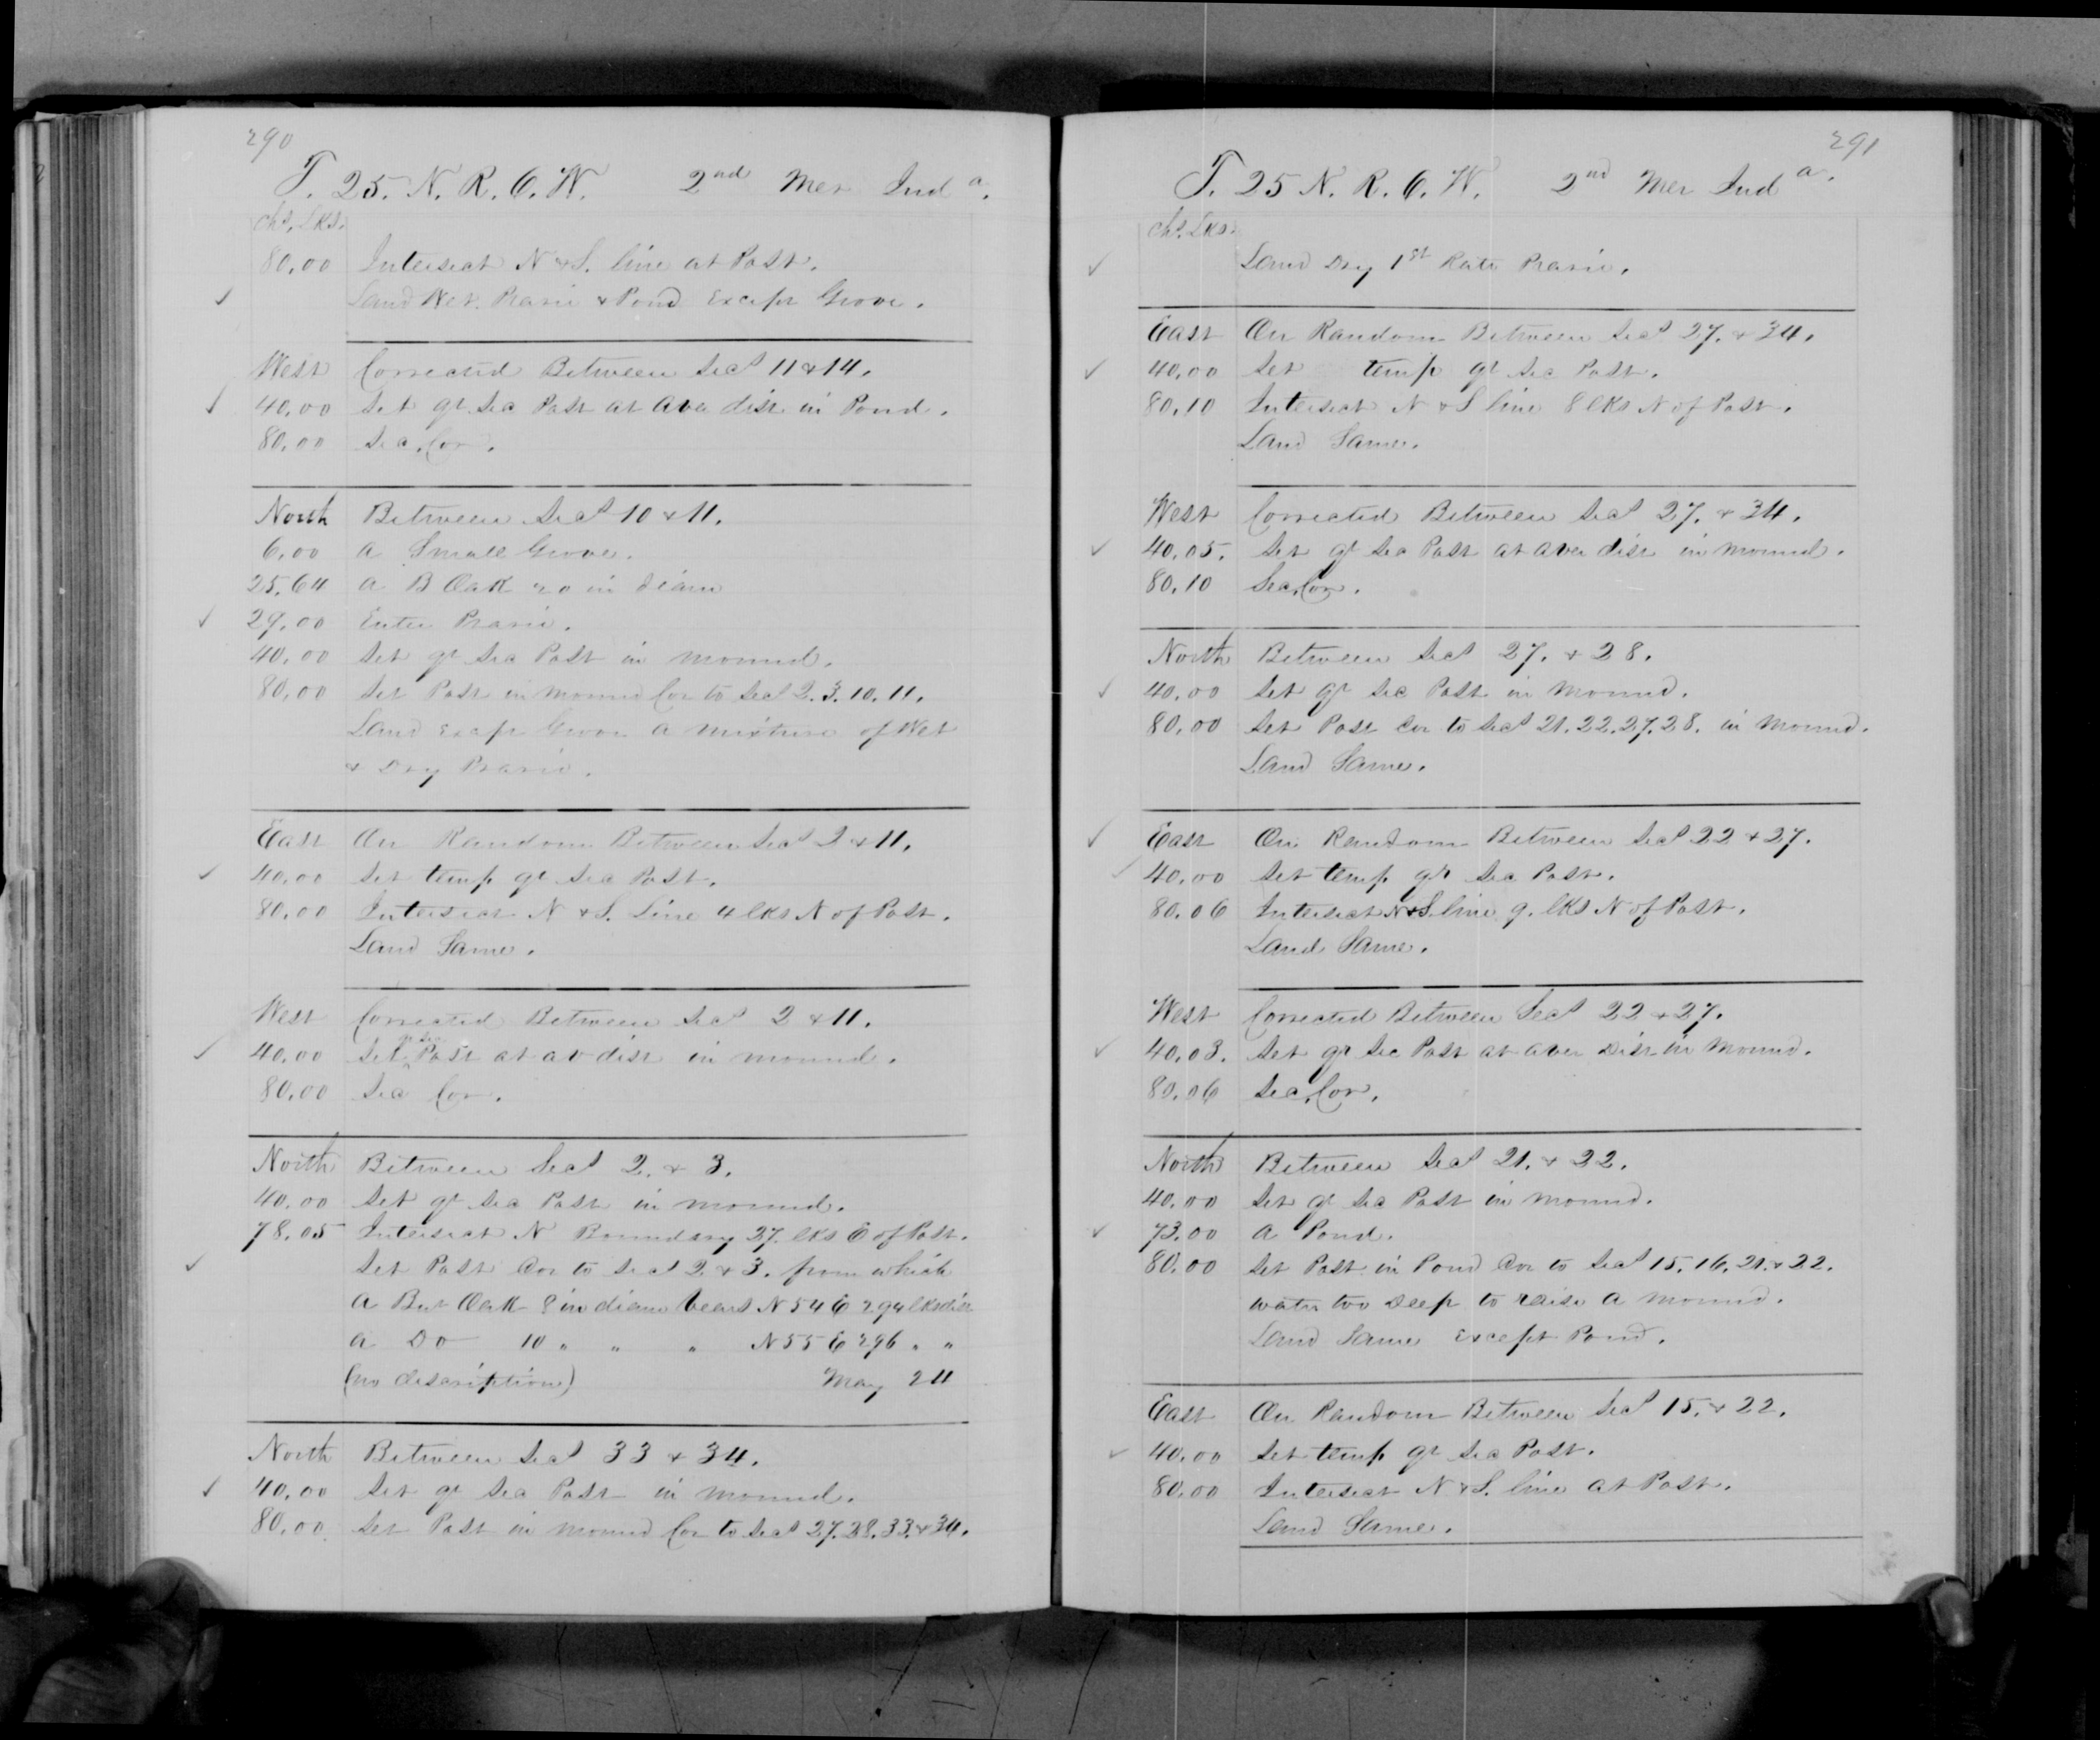 290
T. 25. N. R. 6. W. 2nd Mer Inda.
chs. Lks.
80.00 Intersect N & S. line at Post.
Land Wet Prarie & Pond Except Grove.
West Corrected Between Secs 11 & 14.
40.00 Set qr Sec Post at Aver dist in Pond.
80.00 Sec. Cor.
North Between Secs 10 & 11.
6.00 A Small Grove.
25.64 A B Oak 20 in diam
29.00 Enter Prarie.
40.00 Set qr Sec Post in Mound.
80.00 Set Post in Mound Cor to Secs 2. 3. 10. 11.
Land Except Grove A Mixture of Wet
& Dry Prarie.
East On Random Between Secs 2 & 11.
40.00 Set temp qr Sec Post.
80.00 Intersect N & S. Line 4 lks N of Post.
Land Same.
West Corrected Between Secs 2 & 11.
40.00 Set qr Sec Post at av dist in Mound.
80.00 Sec Cor.
North Between Secs 2. & 3.
40.00 Set qr Sec Post in Mound.
78.05 Intersect N Boundary 37. lks E of Post.
Set Post Cor to Secs 2 & 3. from which
A Bur Oak 8 in diam bears N 54 E 294 lks dist
A Do 10 " " " N 55 E 296 " "
(no description) May 24
North Between Secs 33 & 34.
40.00 Set qr Sec Post in Mound.
80.00 Set Post in Mound Cor to Secs 27. 28. 33. & 34.
291
T. 25 N. R. 6. W. 2nd Mer Inda.
chs. Lks.
Land Dry 1st Rate Prarie.
East On Random Between Secs 27. & 34.
40.00 Set temp qr Sec Post.
80.10 Intersect N & S line 8 lks N of Post.
Land Same.
West Corrected Between Secs 27. & 34.
40.05. Set qr Sec Post at aver dist in Mound.
80.10 Sec. Cor.
North Between Secs 27. & 28.
40.00 Set qr Sec Post in Mound.
80.00 Set Post Cor to Secs 21. 22. 27. 28. in Mound.
Land Same.
East On Random Between Secs 22 & 27.
40.00 Set temp qr Sec Post.
80.06 Intersect N & S. line 9. lks N of Post.
Land Same.
West Corrected Between Secs 22 & 27.
40.03. Set qr Sec Post at aver Dist in Mound.
80.06 Sec. Cor.
North Between Secs 21. & 22.
40.00 Set qr Sec Post in Mound.
73.00 A Pond.
80.00 Set Post in Pond Cor to Secs 15. 16. 21. & 22.
water too Deep to raise A Mound.
Land Same Except Pond.
East On Random Between Secs 15. & 22.
40.00 Set temp qr Sec Post.
80.00 Intersect N & S. line at Post.
Land Same.